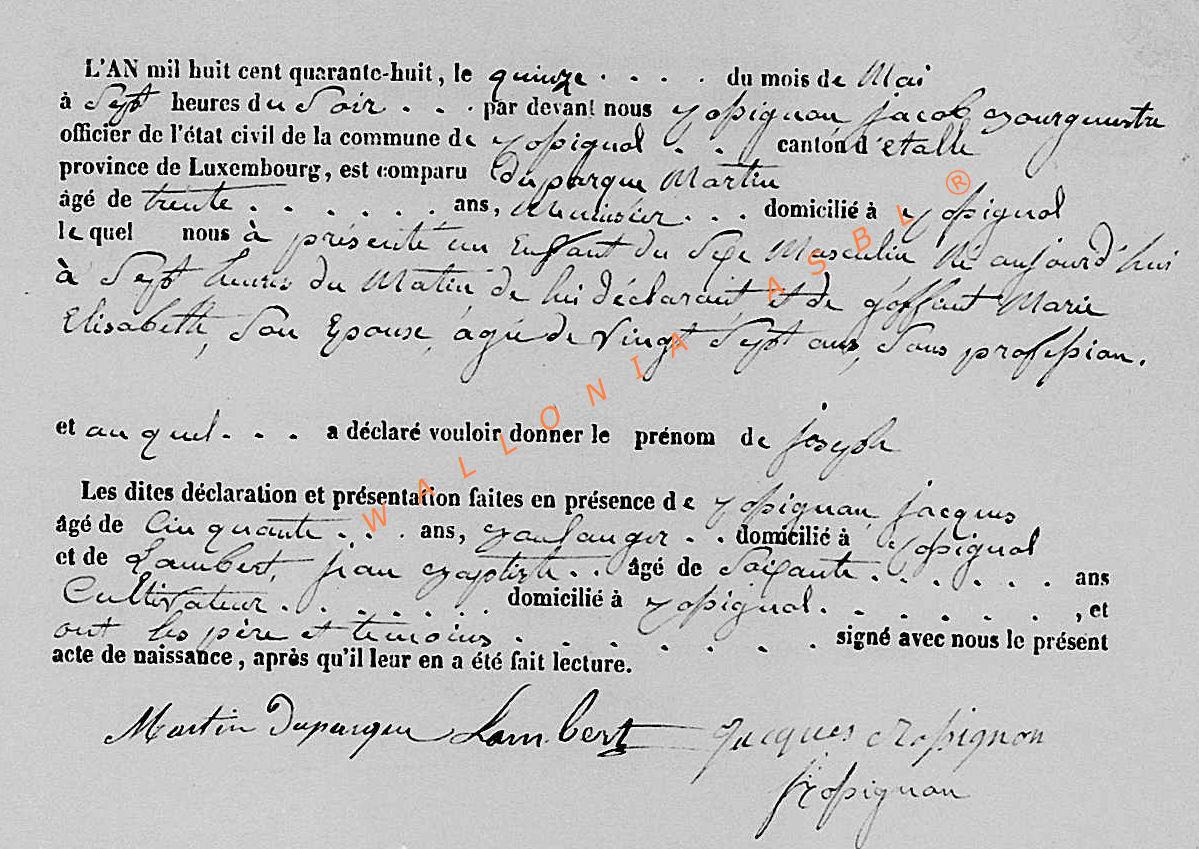 L'AN mil huit cent quarante-huit, le quinze . . . . du mois de Mai
à Sept heures du Soir . . . par devant nous Rossignon Jacob Bourgmestre
officier de l'état civil de la commune de Rossignol . . canton d'étalle
province de Luxembourg, est comparu Duparque Martin
âgé de trente . . . . . . ans, Menuisier . . . domicilié à Rossignol
le quel nous à présenté un Enfant du Sexe Masculin Né aujourd'hui
à Sept heures du Matin de lui déclarant, et de Marie
Elisabeth, Son Epouse, agée de Vingt Sept ans, Sans profession.
et auquel . . . a déclaré vouloir donner le prénom de joseph
Les dites déclaration et présentation faites en présence de Rossignon jacques
âgé de Cinquante . . . ans, Boulanger . . domicilié à Rossignol
et de Lambert, jean Baptiste . . âgé de Soixante . . . . . . ans
Cultivateur . . . . . . . domicilié à Rossignol . . . . . . . , et
ont les père et temoins . . . . . . . signé avec nous le présent
acte de naissance, après qu'il leur en a été fait lecture.
Martin Duparque Lambert Jacques Rossignon
J Rossignon
WALLONIA ASBL ®